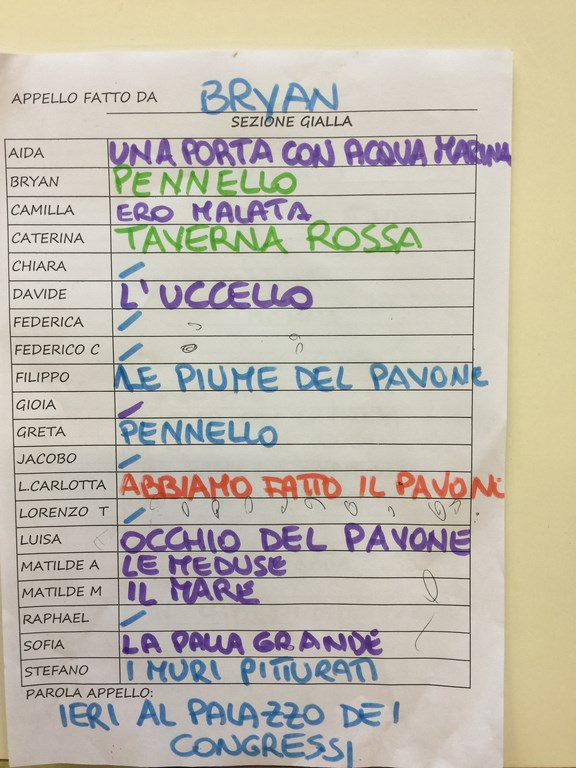 APPELLO FATTO DA BRYAN
SEZIONE GIALLA
AIDA UNA PORTA CON ACQUA MARINA
BRYAN PENNELLO
CAMILLA ERO MALATA
CATERINA TAVERNA ROSSA
CHIARA
DAVIDE L'UCCELLO
FEDERICA
FEDERICO C
FILIPPO LE PIUME DEL PAVONE
GIOIA
GRETA PENNELLO
JACOBO
L.CARLOTTA ABBIAMO FATTO IL PAVONE
LORENZO T
LUISA OCCHIO DEL PAVONE
MATILDE A LE MEDUSE
MATILDE M IL MARE
RAPHAEL
SOFIA LA PALLA GRANDE
STEFANO I MURI PITTURATI
PAROLA APPELLO:
IERI AL PALAZZO DEI
CONGRESSI